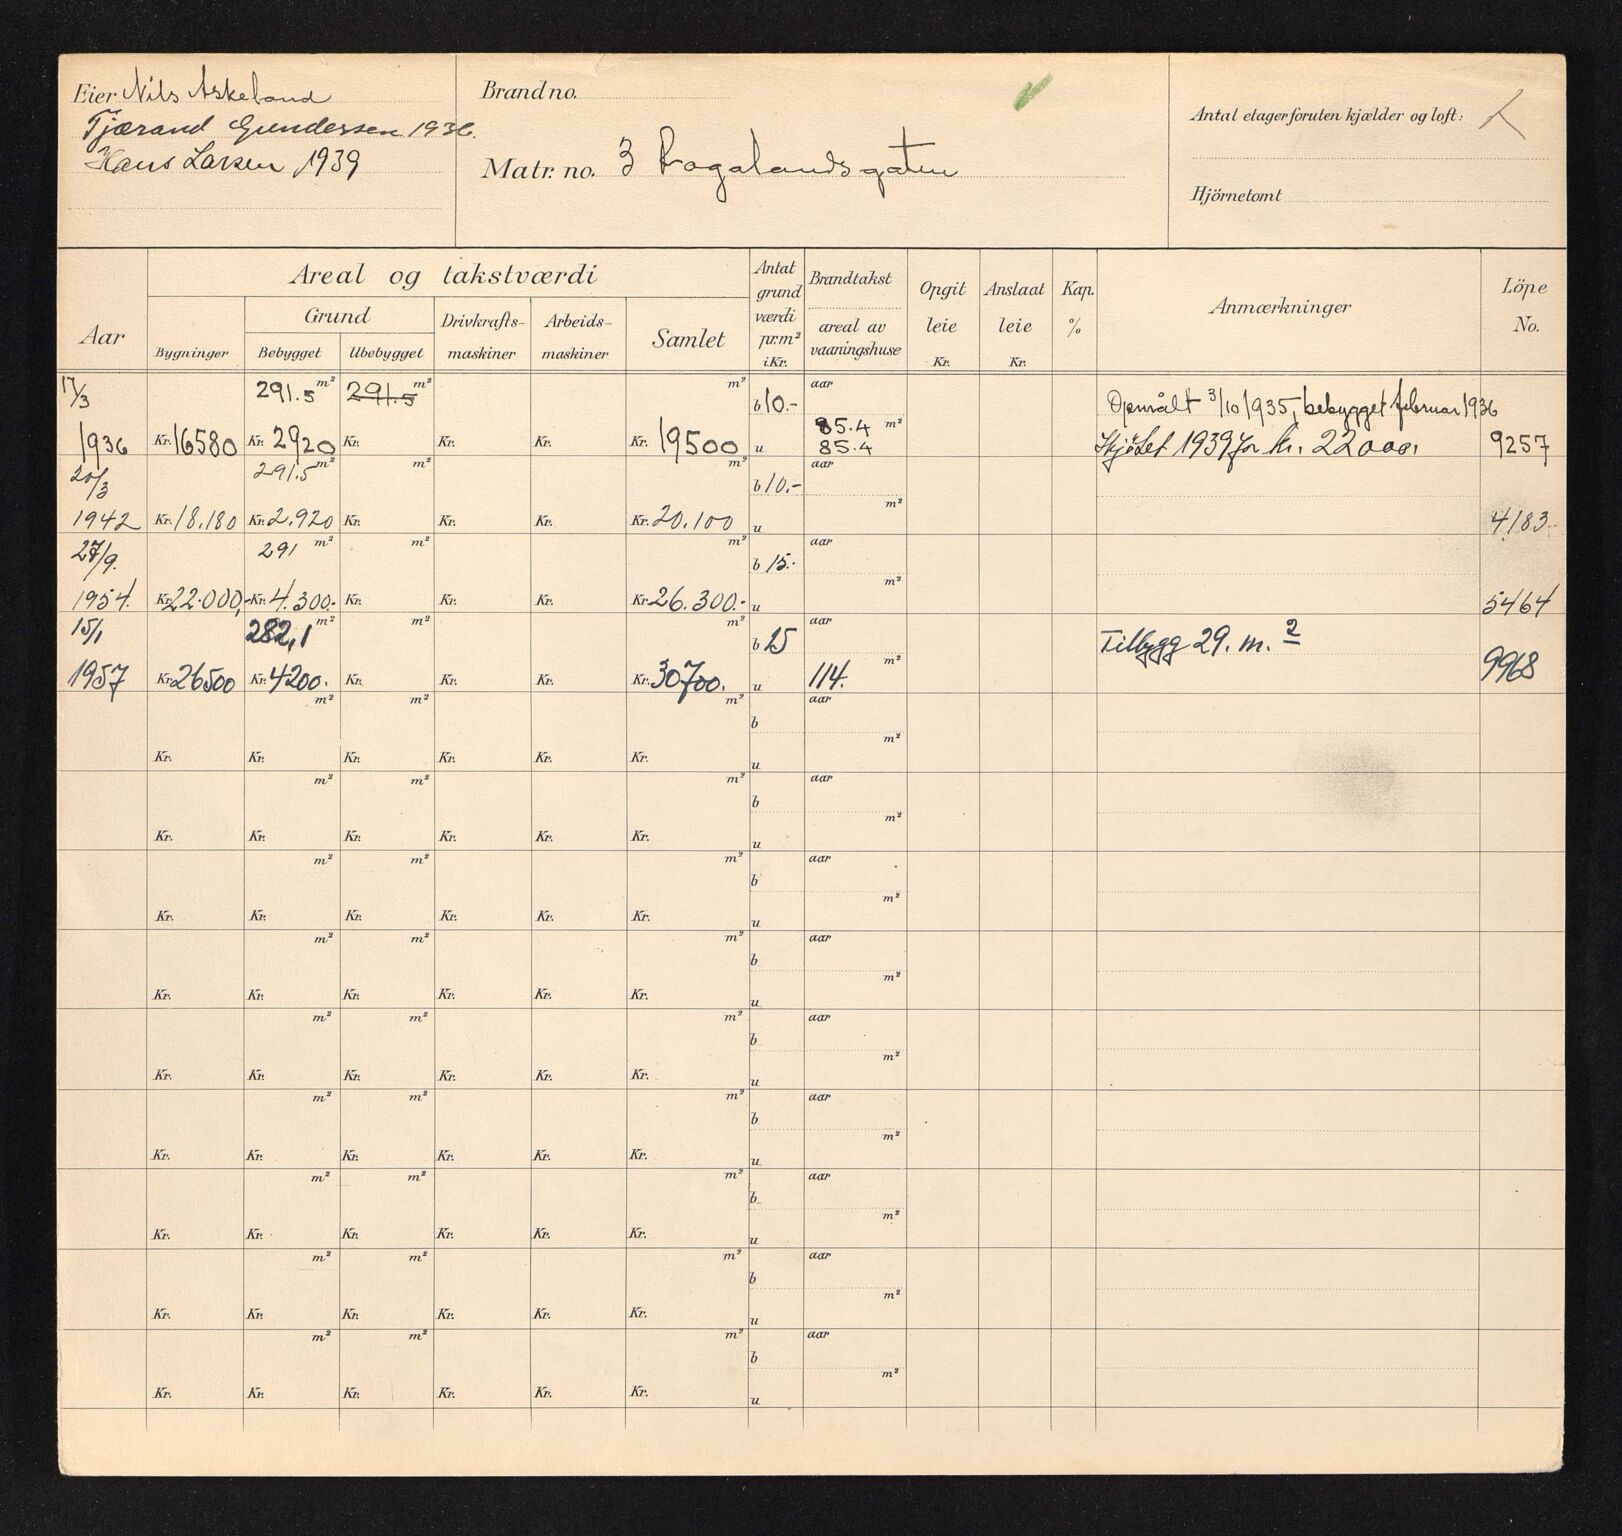 Eier Nils Askeland
Tjærand Gundersen 1936.
Hans Larsen 1939
Brand no.
Matr. no. 3 Rogalandsgaten
Antal etager foruten kjælder og loft:
Hjörnetomt
Aar
Areal og takstværdi
Bygninger
Grund
Bebygget
Ubebygget
Drivkrafts-
maskiner
Arbeids-
maskiner
Samlet
Antat
grund
værdi
pr. m²
i Kr.
Brandtakst
areal av
vaaningshuse
Opgit
leie
Kr.
Anslaat
leie
Kr.
Kap.
%
Anmærkninger
Löpe
No.
17/3 291.5 m² 291.5 m² m² b 10.- aar Opmålt 3/10 1935, bebygget februar 1936
1936 Kr. 16580 Kr. 2920 Kr. Kr. Kr. Kr. 19500 u 85.4 m² 85.4 Skjötet 1939 for kr. 22000. 9257
20/3 291.5 m² m² m² b 10.- aar
1942 Kr. 18.180 Kr. 2.920 Kr. Kr. Kr. Kr. 20.100 u m² 4183.
27/9. 291 m² m² m² b 15.- aar
1954. Kr. 22.000,- Kr. 4.300.- Kr. Kr. Kr. Kr. 26.300.- u m² 5464
15/1 282,1 m² m² m² b 15 aar Tilbygg 29. m.²
1957 Kr. 26500 Kr. 4200. Kr. Kr. Kr. Kr. 30700. u 114. m² 9968
m² m² m² b aar
Kr. Kr. Kr. Kr. Kr. Kr. u m²
m² m² m² b aar
Kr. Kr. Kr. Kr. Kr. Kr. u m²
m² m² m² b aar
Kr. Kr. Kr. Kr. Kr. Kr. u m²
m² m² m² b aar
Kr. Kr. Kr. Kr. Kr. Kr. u m²
m² m² m² b aar
Kr. Kr. Kr. Kr. Kr. Kr. u m²
m² m² m² b aar
Kr. Kr. Kr. Kr. Kr. Kr. u m²
m² m² m² b aar
Kr. Kr. Kr. Kr. Kr. Kr. u m²
m² m² m² b aar
Kr. Kr. Kr. Kr. Kr. Kr. u m²
m² m² m² b aar
Kr. Kr. Kr. Kr. Kr. Kr. u m²